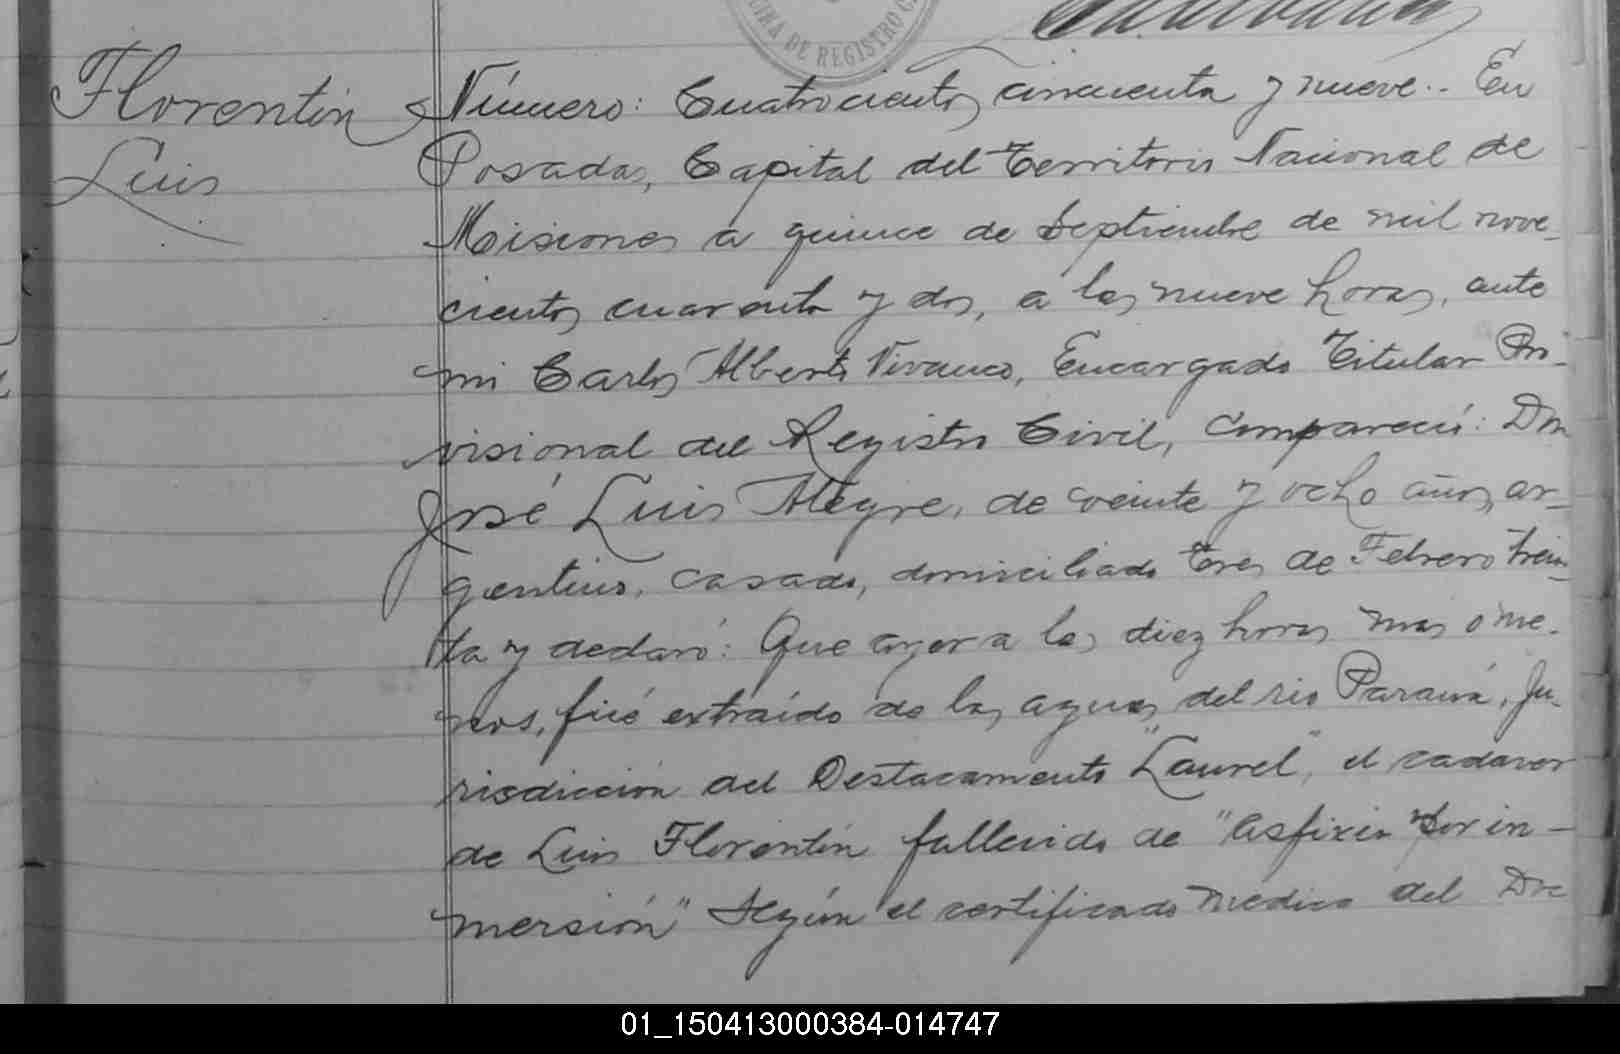 OFICINA DE REGISTRO C
Florentín
Luis
Número: Cuatrocientos cincuenta y nueve.- En
Posadas, Capital del Territorio Nacional de
Misiones a quince de Septiembre de mil nove-
cientos cuarenta y dos, a las nueve horas, ante
mi Carlos Alberto Vivanco, Encargado Titular Pro-
visional del Registro Civil, compareció: Don
José Luis Alegre, de veinte y ocho años, ar-
gentino, casado, domiciliado Tres de Febrero trein-
ta y declaró: Que ayer a las diez horas mas o me-
nos, fué extraído de las aguas del rio Paraná, ju-
risdicción del Destacamento "Laurel", el cadaver
de Luis Florentín fallecido de "Asfixia por in-
mersión" según el certificado medico del Dr
01_150413000384-014747